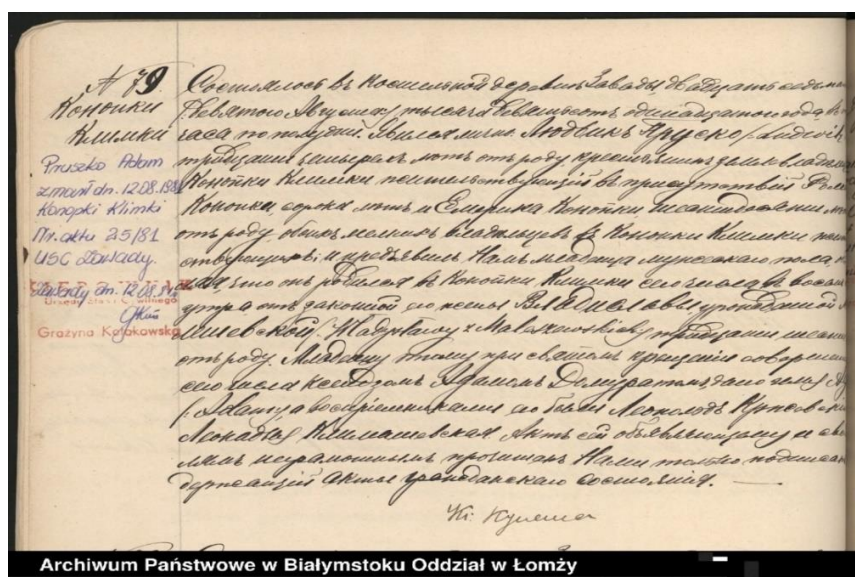 № 79.
Конопки
Климки
Pruszko Adam
zmarł dn. 12.08.1981
Konopki Klimki
Nr. aktu 25/81
USC Zawady.
Zawady dn. 12.08.81
Urzędu Stanu Cywilnego
Grażyna Kołakowska
Состоялось въ костельной деревнѣ Завады двадцать седьмаго
девятого Августа тысяча девятьсотъ одинадцатого года, въ
часа по полудни. Явился лично Людвикъ Прусско /Ludwik
тридцати четырехъ лѣтъ отъ роду крестьянинъ домовладѣлецъ
Конопки Климки жительствующій въ присутствіи
Конопки, сорока лѣтъ и Конопки, шестидесяти лѣтъ
отъ роду, обоихъ мелкихъ владѣльцевъ въ Конопки Климки
ствующихъ; и предъявилъ Намъ младенца мужескаго пола,
что онъ родился въ Конопки Климки сего числа въ восемь
утра отъ законной его жены Владиславы урожденной
/Władysławy z Małaszewskich/ тридцати
отъ роду. Младенцу этому при святомъ крещеніи совершенномъ
сего числа Ксендзомъ Адамомъ дано имя
/Adam/ а воспріемниками его были Леопольдъ
Леокадья Климашевская. Актъ сей объявляющему и
лямъ неграмотнымъ прочитанъ Нами только подписанъ
держащій акты гражданскаго состоянія.
Кс.
Archiwum Państwowe w Białymstoku Oddział w Łomży